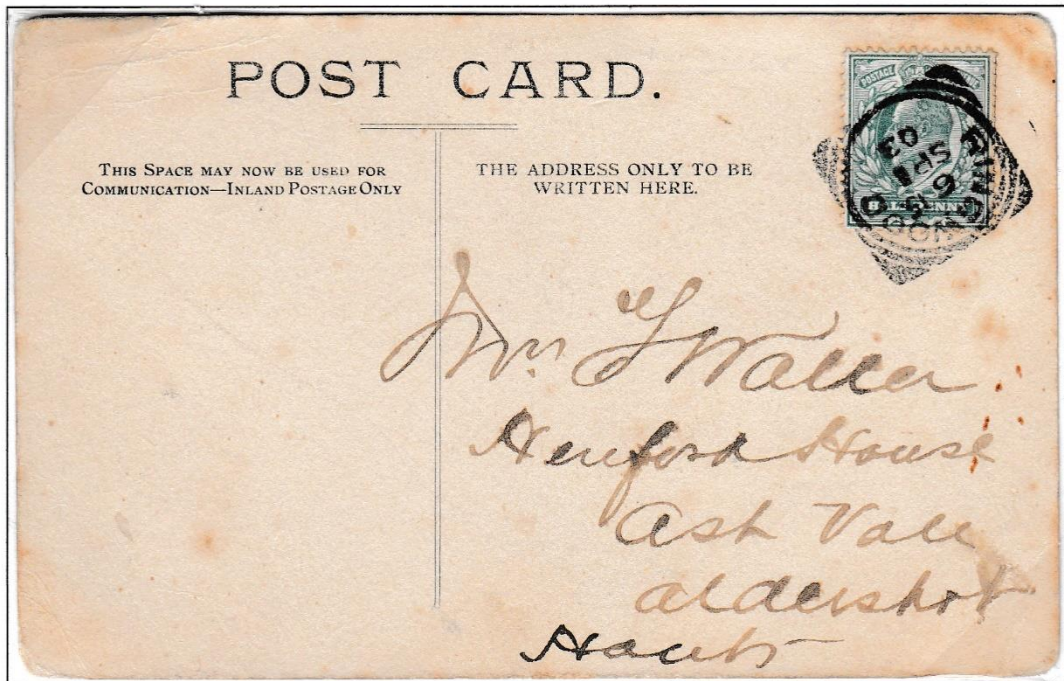 POST CARD.
THIS SPACE MAY NOW BE USED FOR
COMMUNICATION—INLAND POSTAGE ONLY
THE ADDRESS ONLY TO BE
WRITTEN HERE.
POSTAGE
HALFPENNY
RINGWOOD
SP 1
03
Waller
House
Ash Vale
Aldershot
Hants